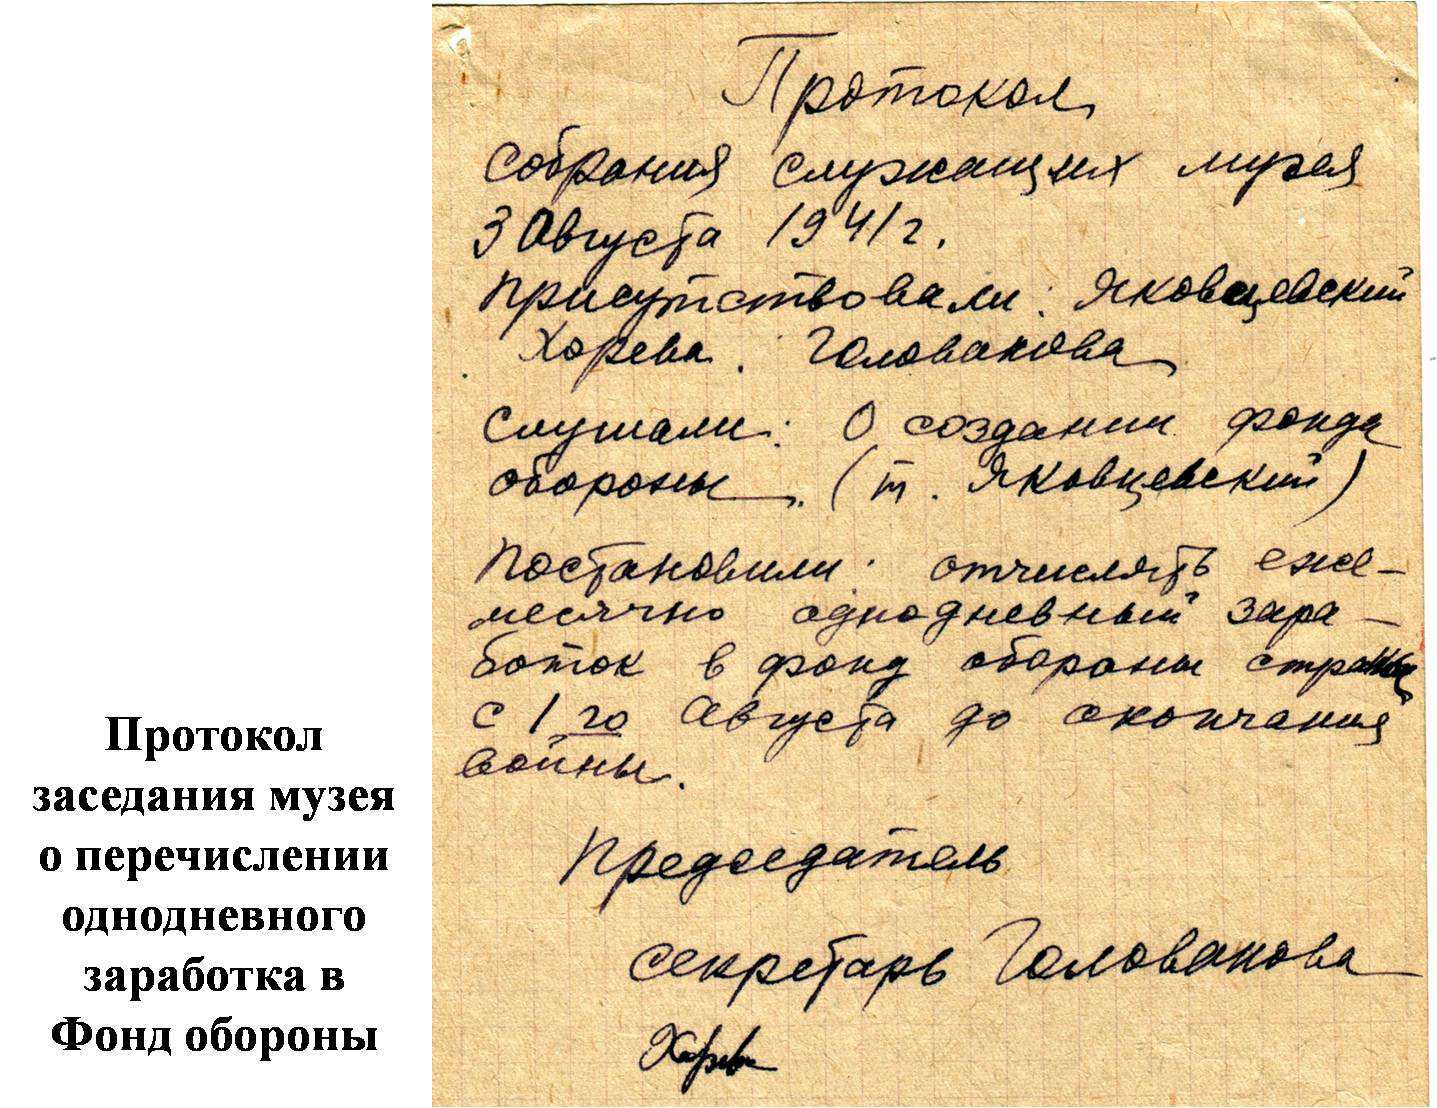 Протокол
собрания служащих музея
3 Августа 1941 г.
Присутствовали: Яковцевский
Хорева. Голованова
Слушали: О создании фонда
обороны. (т. Яковцевский)
Постановили: отчислять еже-
месячно однодневный зара-
боток в фонд обороны страны
с 1го Августа до окончания
войны.
Председатель
секретарь Голованова
Хорева
Протокол
заседания музея
о перечислении
однодневного
заработка в
Фонд обороны